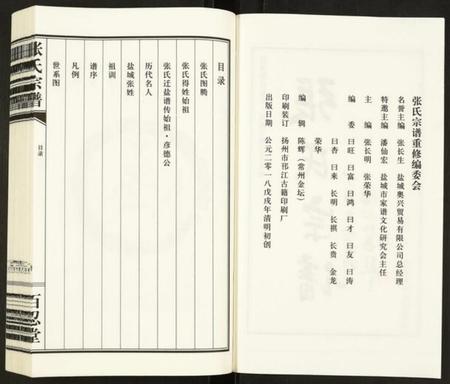 张氏宗谱重修编委会
名誉主编 张长生 盐城奥兴贸易有限公司总经理
特邀主编 潘仙宏 盐城市家谱文化研究会主任
主 编 张长明 张荣华
编 委 曰旺 曰富 曰鸿 曰才 曰友 曰涛
曰杏 曰来 长明 长祺 长贵 金龙
荣华
编 辑 陈辉（常州金坛）
印刷装订 扬州市邗江古籍印刷厂
出版日期 公元二零一八戊戌年清明初创
目录
张氏图腾
张氏得姓始祖
张氏迁盐谱传始祖·彦德公
历代名人
盐城张姓
祖训
谱序
凡例
世系图
张氏宗谱
目录
百忍堂